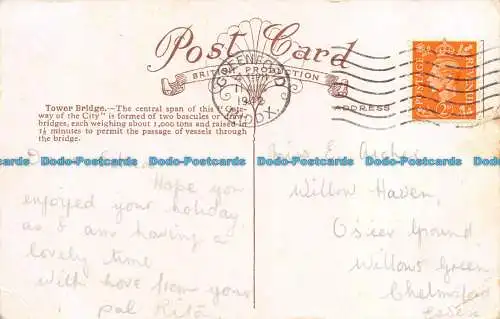 Post Card
BRITISH PRODUCTION
ADDRESS
Tower Bridge.—The central span of this "Gate-
way of the City" is formed of two bascules or draw-
bridges, each weighing about 1,000 tons and raised in
1½ minutes to permit the passage of vessels through
the bridge.
GREENFORD
1942
POSTAGE
REVENUE
Hope you
enjoyed your holiday
as I am having a
lovely time
With love from your
pal Rita
Miss E Archer
Willow Haven,
Osier Ground
Willows Green
Chelmsford
Essex
Postcards-Docks Postcards-Docks Postcards-Docks